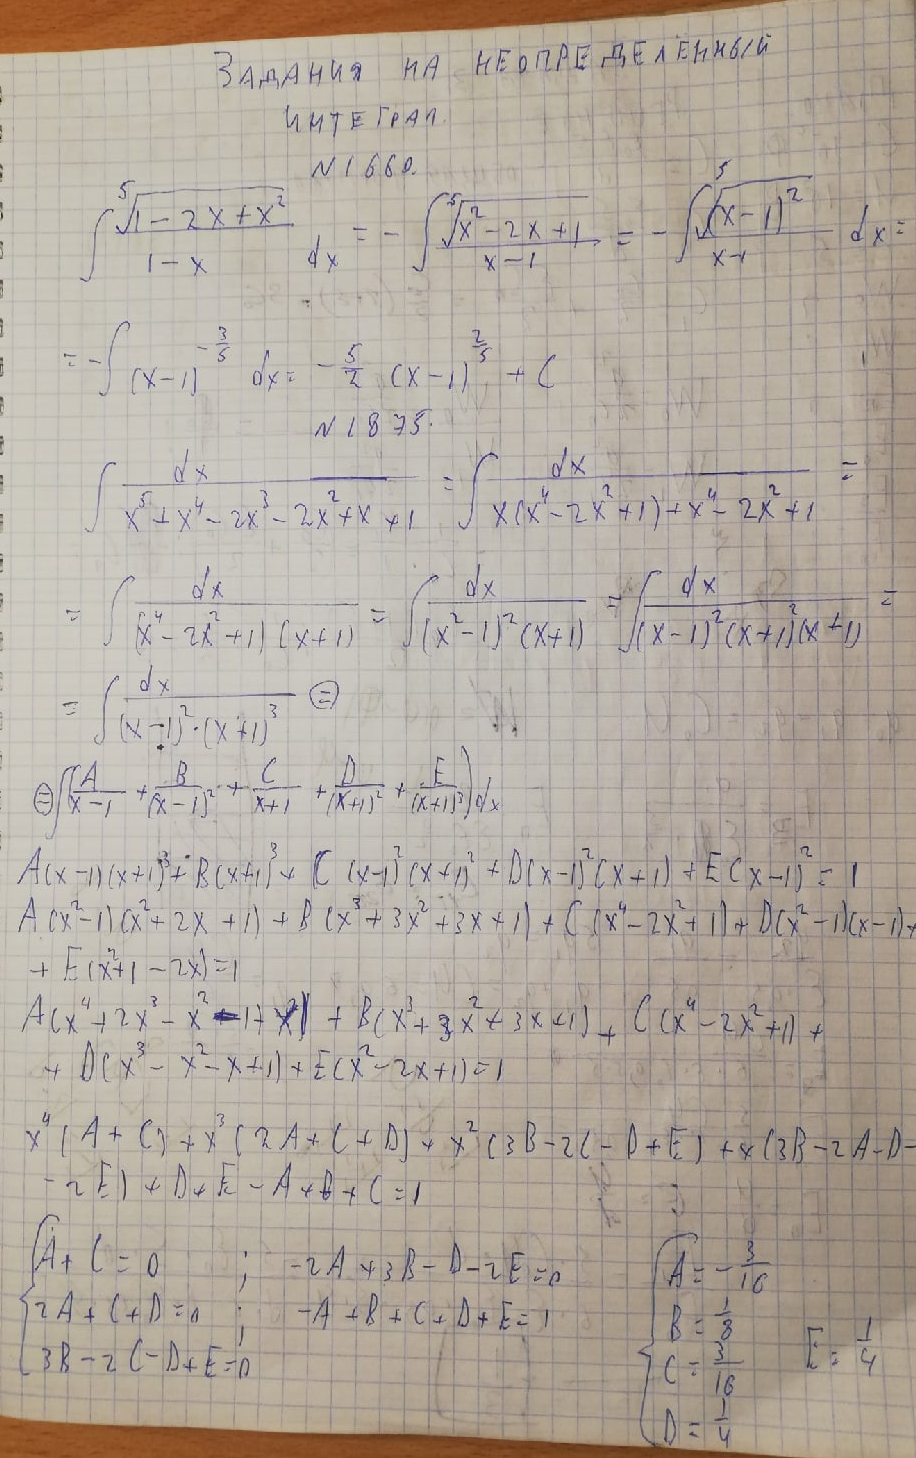 ЗАДАНИЯ НА НЕОПРЕДЕЛЕННЫЙ
ИНТЕГРАЛ
N 1660.
∫ ⁵√(1-2x+x²)/(1-x) dx = -∫ ⁵√(x²-2x+1)/(x-1) = -∫ ⁵√((x-1)²)/(x-1) dx =
= -∫ (x-1)^(-3/5) dx = -5/2 (x-1)^(2/5) + C
N 1875.
∫ dx/(x⁵+x⁴-2x³-2x²+x+1) = ∫ dx/(x(x⁴-2x²+1)+x⁴-2x²+1) =
= ∫ dx/((x⁴-2x²+1)(x+1)) = ∫ dx/((x²-1)²(x+1)) = ∫ dx/((x-1)²(x+1)²(x+1)) =
= ∫ dx/((x-1)²·(x+1)³) ⊜
⊜ ∫(A/(x-1) + B/(x-1)² + C/(x+1) + D/(x+1)² + E/(x+1)³)dx
A(x-1)(x+1)³+B(x+1)³+C(x-1)²(x+1)²+D(x-1)²(x+1)+E(x-1)²=1
A(x²-1)(x²+2x+1)+B(x³+3x²+3x+1)+C(x⁴-2x²+1)+D(x²-1)(x-1)+
+E(x²+1-2x)=1
+B(x³+3x²+3x+1)+C(x⁴-2x²+1)+
+D(x³-x²-x+1)+E(x²-2x+1)=1
x⁴(A+C)+x³(2A+C+D)+x²(3B-2C-D+E)+x(3B-2A-D-
-2E)+D+E-A+B+C=1
A+C=0 ; -2A+3B-D-2E=0 A=-3/16
2A+C+D=0 ; -A+B+C+D+E=1 B=1/8 E=1/4
3B-2C-D+E=0 C=3/16
D=1/4